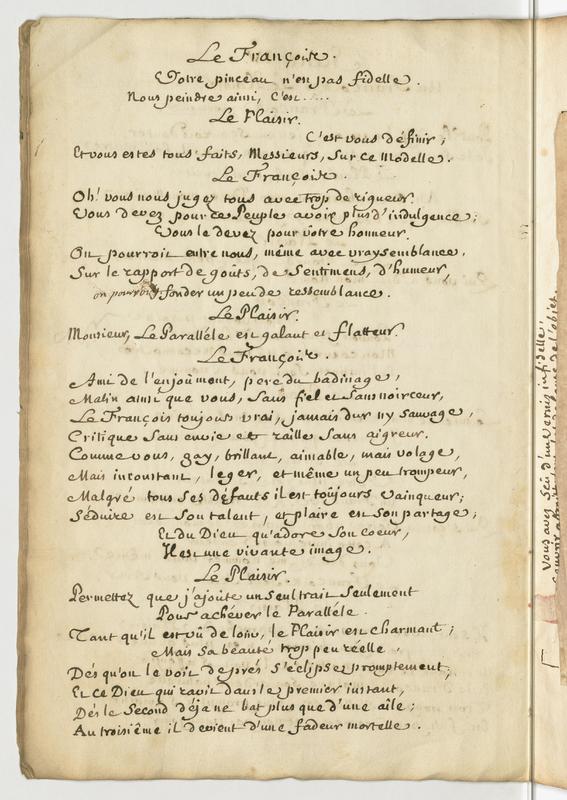 Le François.
Votre pinceau n'est pas fidelle.
Nous peindre ainsi, C'est.....
Le Plaisir.
C'est vous définir;
Et vous estes tous faits, Messieurs, sur ce Modelle.
Le François.
Oh! vous nous jugez tous avec trop de rigueur.
Vous devez pour ce Peuple avoir plus d'indulgence;
Vous le devez pour vôtre honneur.
On pourroit entre nous, même avec vraysemblance,
Sur le rapport de goûts, de Sentimens, d'humeur,
on pourroit fonder un peu de ressemblance.
Le Plaisir.
Monsieur, Le Paralléle est galant et flatteur.
Le François.
Ami de l'enjoûment, pere du badinage,
Malin ainsi que vous, sans fiel et sans noirceur,
Le François toujours vrai, jamais dur ny sauvage,
Critique sans envie et raille sans aigreur.
Comme vous, gay, brillant, aimable, mais volage,
Mais inconstant, leger, et même un peu trompeur,
Malgré tous ses défauts il est toûjours vainqueur;
Séduire est son talent, et plaire est son partage;
Et du Dieu qu'adore son coeur,
Il est une vivante image.
Le Plaisir.
Permettez que j'ajoûte un seul trait seulement
Pour achéver le Paralléle.
Tant qu'il est vû de loin, le Plaisir est charmant;
Mais sa beauté trop peu réelle,
Dés qu'on le voit de prés s'éclipse promptement,
Et ce Dieu qui ravit dans le premier instant,
Dés le Second déja ne bat plus que d'une aîle;
Au troisiême il devient d'une fadeur mortelle.
vous avez sçû, d'un vernis infidelle,
de l'objet.